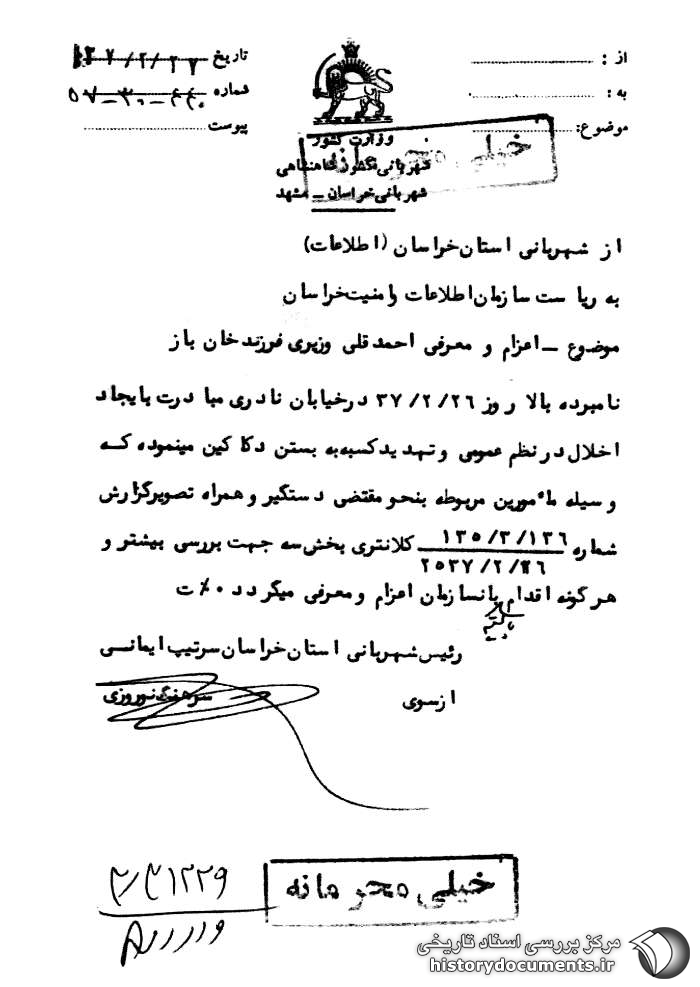 از :
به :
موضوع:
تاریخ ۳۷/۲/۲۷
شماره
پیوست
وزارت کشور
شهربانی کشور شاهنشاهی
شهربانی خراسان ـ مشهد
خیلی محرمانه
از شهربانی استان خراسان (اطلاعات)
به ریاست سازمان اطلاعات و امنیت خراسان
موضوع ـ اعزام و معرفی احمد قلی وزیری فرزند خان باز
نامبرده بالا روز ۳۷/۲/۲۶ در خیابان نادری مبادرت بایجاد
اخلال در نظم عمومی و تهدید کسبه به بستن دکاکین مینموده که
وسیله مأمورین مربوطه بنحو مقتضی دستگیر و همراه تصویر گزارش
شماره ۱۳۵/۳/۱۳۶ کلانتری بخش سه جهت بررسی بیشتر و
۲۵۳۷/۲/۲۶
هر گونه اقدام بانسازمان اعزام و معرفی میگردد ۰٪ ت
رئیس شهربانی استان خراسان سرتیپ ایمانی
از سوی سرهنگ نوروزی
خیلی محرمانه
مرکز بررسی اسناد تاریخی
historydocuments.ir